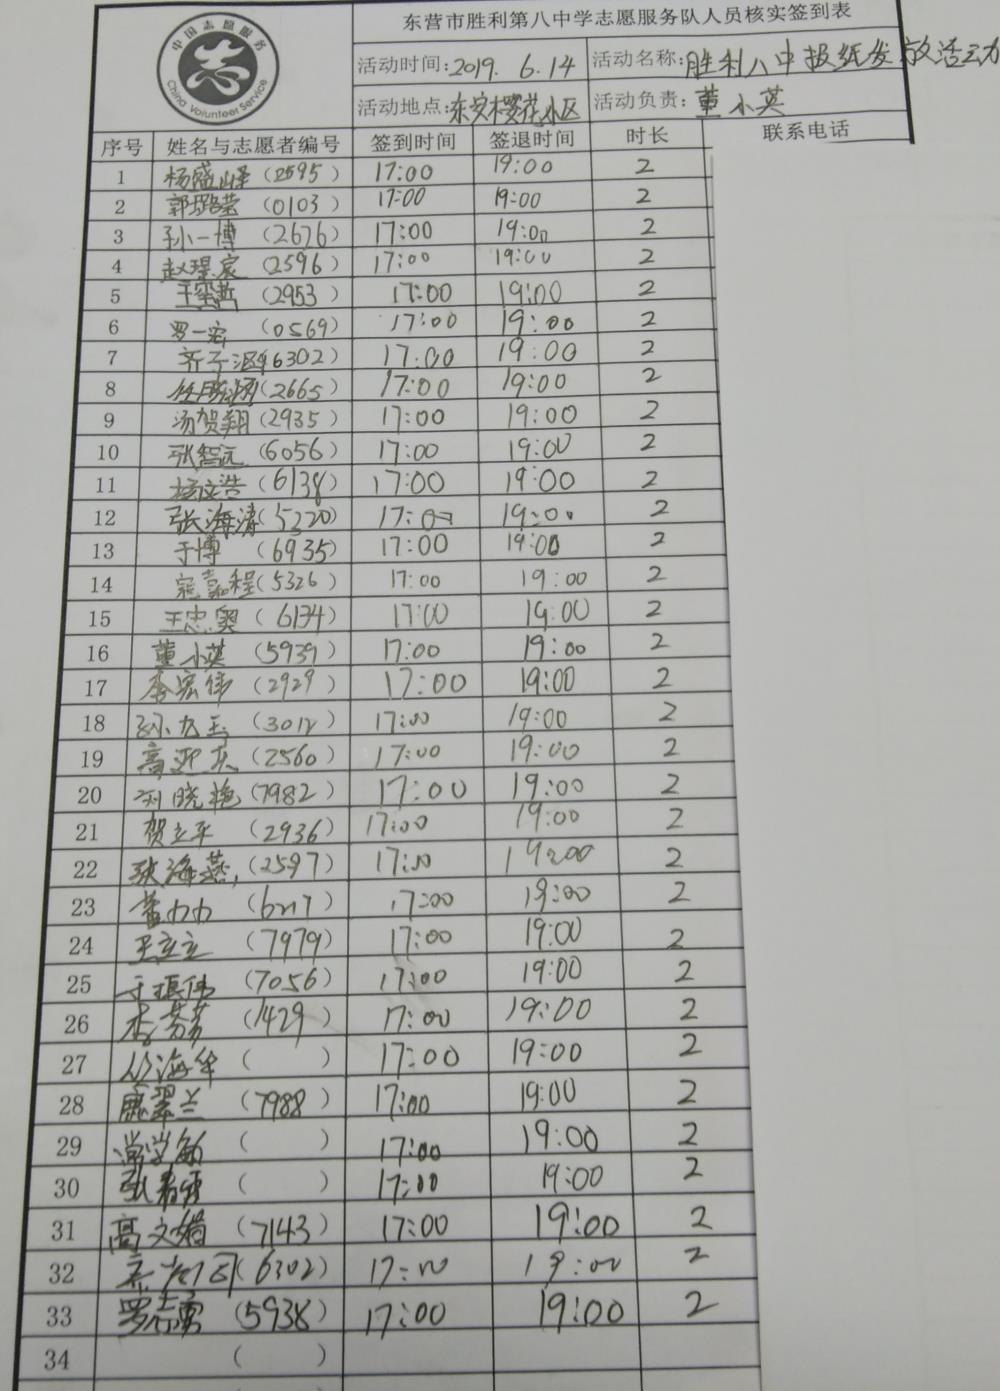 中国志愿服务
志
China Volunteer Service
东营市胜利第八中学志愿服务队人员核实签到表
活动时间:2019. 6.14 活动名称:胜利八中报纸发放活动
活动地点:东安樱花小区 活动负责:董小英
序号 姓名与志愿者编号 签到时间 签退时间 时长 联系电话
1 杨盛峄(2595) 17:00 19:00 2
2 郭璐荣(0103) 17:00 19:00 2
3 孙一博(2676) 17:00 19:00 2
4 赵璟宸(2596) 17:00 19:00 2
5 王 (2953) 17:00 19:00 2
6 罗一宏(0569) 17:00 19:00 2
7 齐子涵(6302) 17:00 19:00 2
8 任 (2665) 17:00 19:00 2
9 汤贺翔(2935) 17:00 19:00 2
10 张智远(6056) 17:00 19:00 2
11 杨文浩(6138) 17:00 19:00 2
12 张海涛(5220) 17:00 19:00 2
13 于博(6935) 17:00 19:00 2
14 寇嘉程(5326) 17:00 19:00 2
15 王忠奥(6134) 17:00 19:00 2
16 董小英(5939) 17:00 19:00 2
17 李宏伟(2929) 17:00 19:00 2
18 孙九玉(3012) 17:00 19:00 2
19 高迎东(2560) 17:00 19:00 2
20 刘晓艳(7982) 17:00 19:00 2
21 贺立平(2936) 17:00 19:00 2
22 张海燕(2597) 17:00 19:00 2
23 董力力(6217) 17:00 19:00 2
24 王立立(7979) 17:00 19:00 2
25 于振伟(7056) 17:00 19:00 2
26 李芳芳(1429) 17:00 19:00 2
27 从海华( ) 17:00 19:00 2
28 鹿翠兰(7988) 17:00 19:00 2
29 常学敏( ) 17:00 19:00 2
30 张春雪( ) 17:00 19:00 2
31 高文娟(7143) 17:00 19:00 2
32 齐 (6302) 17:00 19:00 2
33 罗志勇(5938) 17:00 19:00 2
34 ( )